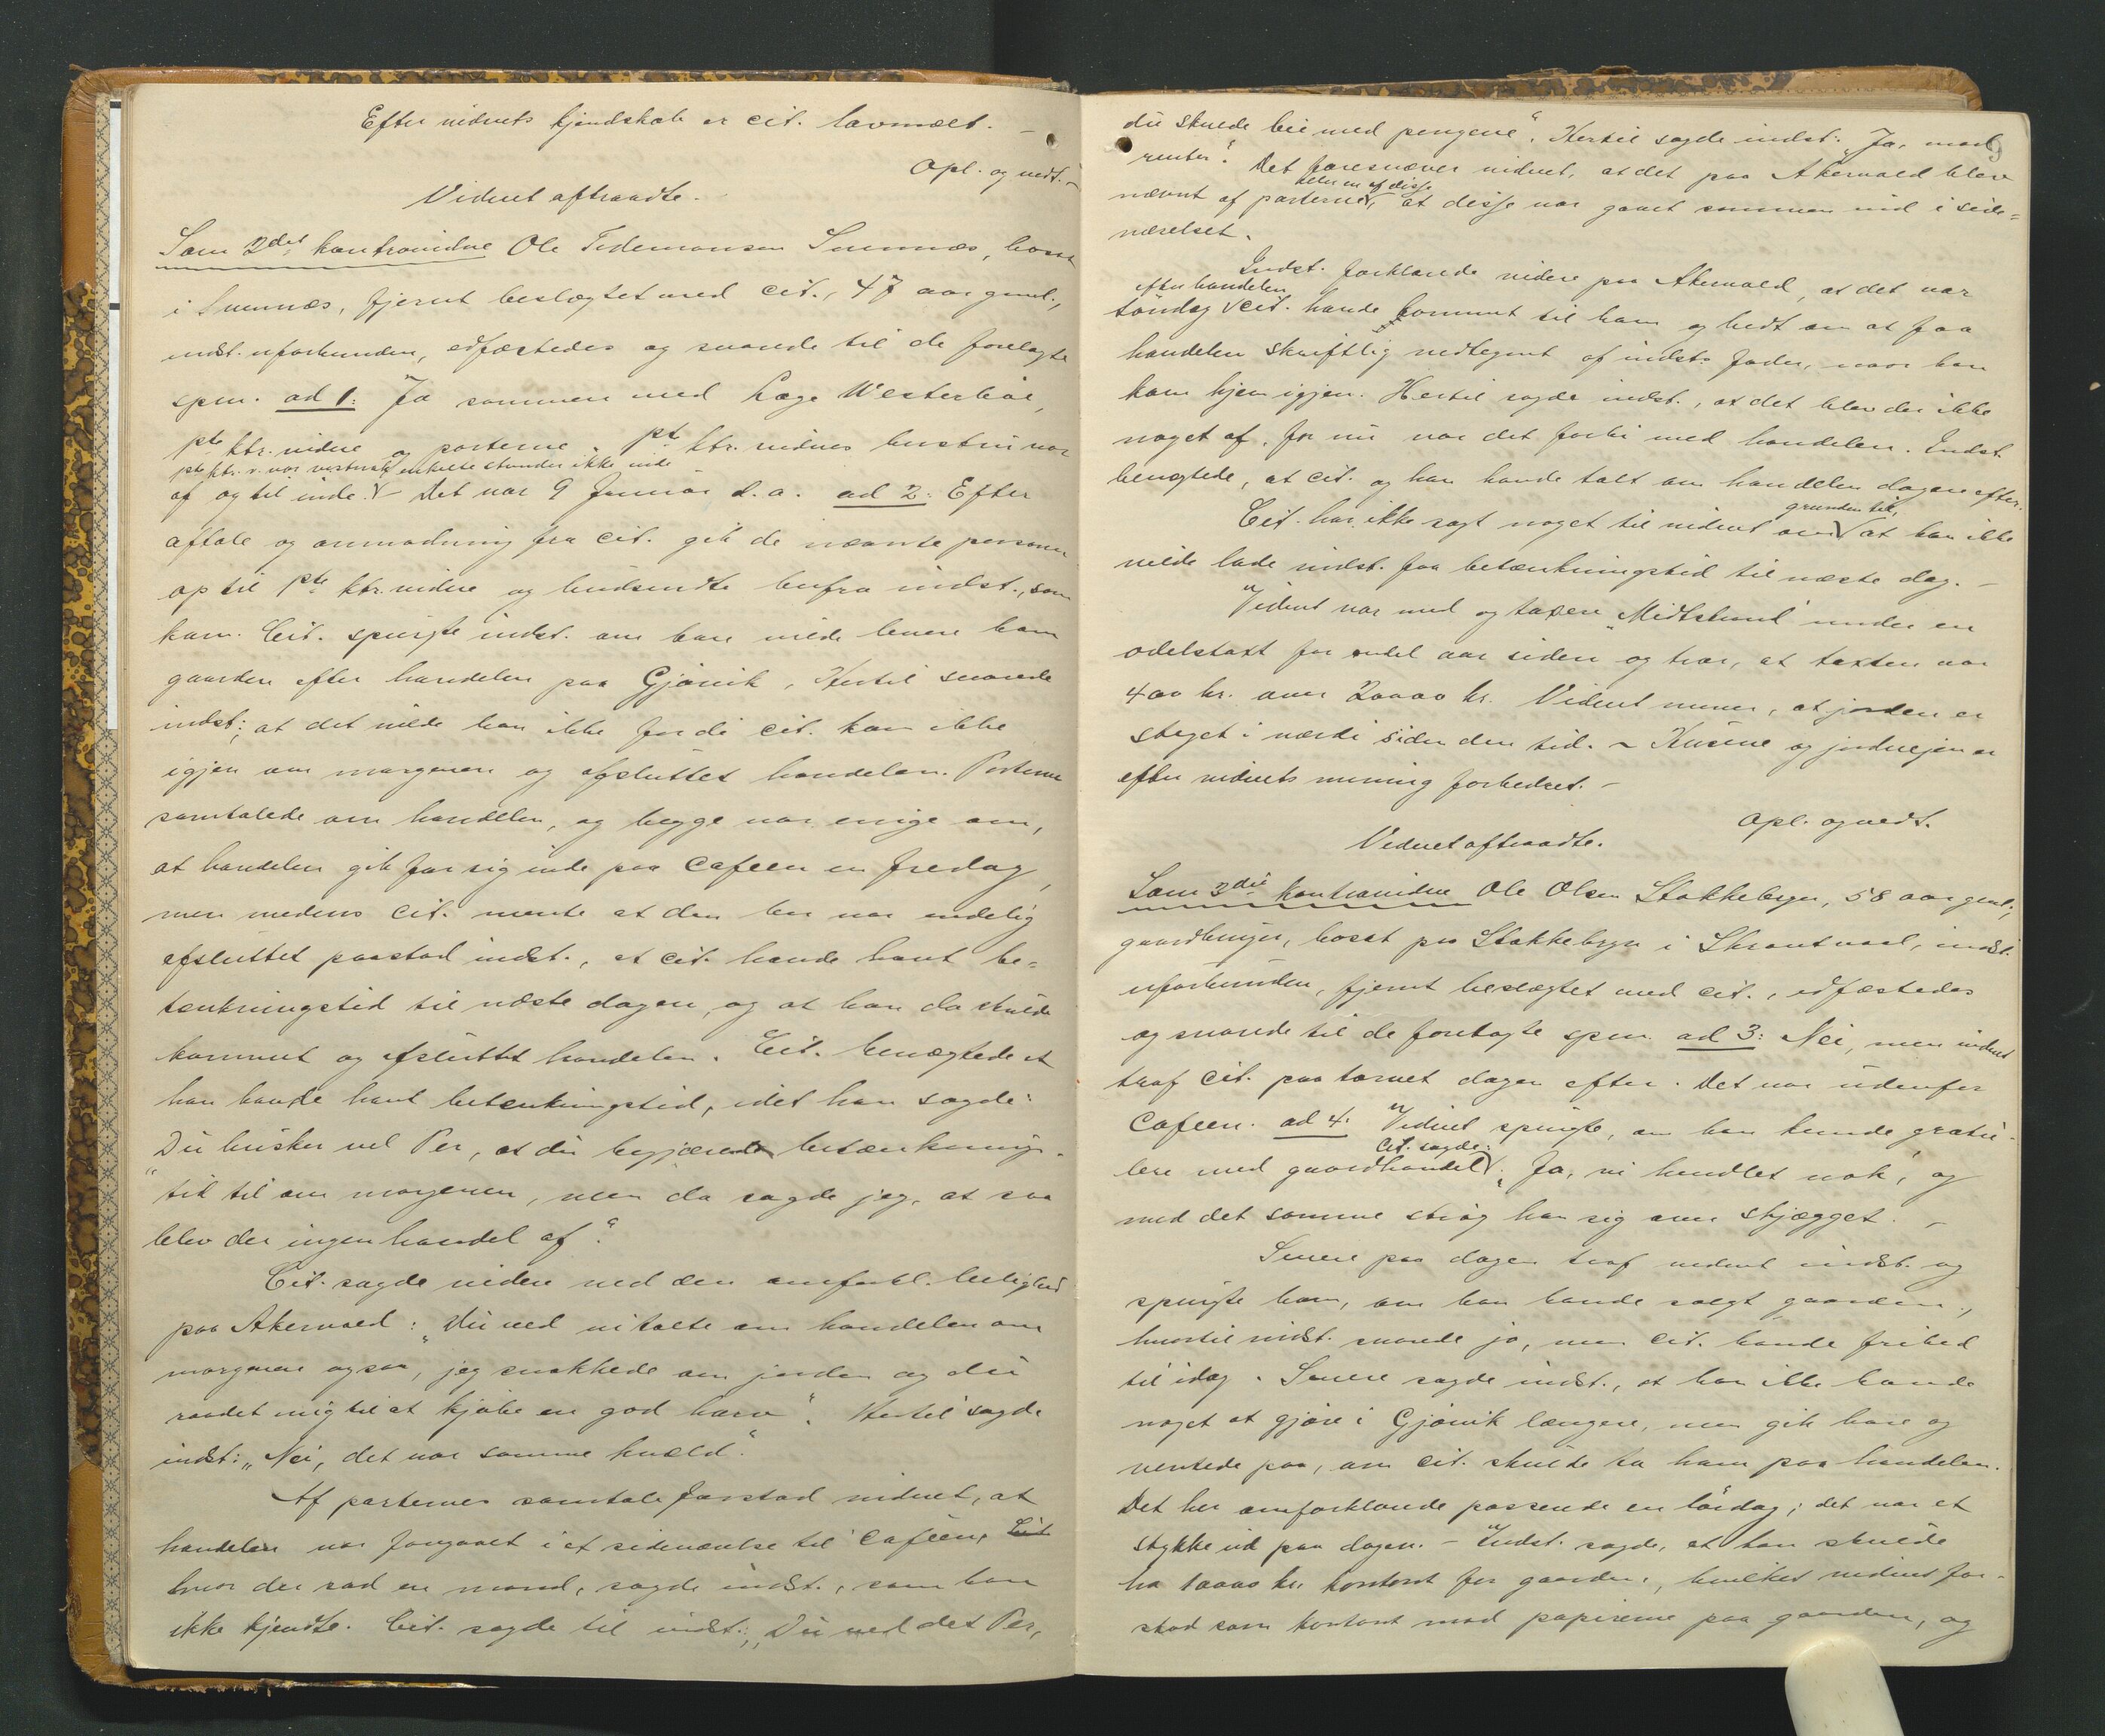 Efter vidnets kjendskab er cit. lavmælt. —
Opl. og vedt. —
Vidnet aftraadte.
Som 2det kontravidne Ole Tidemansen Sunmæs, bosat
i Sunmæs, fjernt beslægtet med cit., 47 aar gml.,
indst. uforbunden, edfæstedes og svarede til de forelagte
spm. ad 1: Ja sammen med Læge Westerbøe,
1ste ktr. vidne og parterne. 1ste ktr. vidnes hustru var
1ste ktr. v. var vistnok enkelte stunder ikke inde
af og til inde. V – Det var 9 Januar d.a. ad 2: Efter
aftale og anmodning fra cit. gik de nævnte personer
op til 1ste ktr. vidne og budsendte herfra indst., som
kom. Cit. spurgte indst. om han vilde levere ham
gaarden efter handelen paa Gjøvik. Hertil svarede
indst., at det vilde han ikke fordi cit. kom ikke
igjen om morgenen og afsluttet handelen. Parterne
samtalede om handelen, og begge var enige om,
at handelen gik for sig inde paa Cafeen en fredag,
men medens cit. mente at den her var endelig
afsluttet paastod indst., at cit. havde havt be=
tænkningstid til næste dagen, og at han da skulde
kommet og afsluttet handelen. Cit. benægtede at
han havde havt betænkningstid, idet han sagde:
„Du husker vel Per, at du begjærede betænknings-
tid til om morgenen, men da sagde jeg, at saa
blev der ingen handel af“.
Cit. sagde videre ved den omforkl. leilighed
paa Akervold: „Du ved vi talte om handelen om
morgenen ogsaa, jeg snakkede om jorden og du
raadet mig til at kjøbe en god harv“. Hertil sagde
indst: „Nei, det var samme kveld“.
Af parternes samtale forstod vidnet, at
handelen var foregaaet i et sideværelse til Cafeen, Cit
hvor der sad en mand, sagde indst., som han
ikke kjendte. Cit. sagde til indst.: „Du ved det Per,
9
du skulde bie med pengene“. Hertil sagde indst. „Ja, mod
renter“. Det foresvæver vidnet, at det paa Akervold blev
eller en af disse
nævnt af parterne V, at disse var gaaet sammen ind i side=
værelset.
Indst. forklarede videre paa Akervold, at det var
efter handelen
søndag V cit. havde kommet til ham og bedt om at faa
handelen skriftlig nedtegnet af indsts fader, naar han
kom hjem igjen. Hertil sagde indst., at det blev der ikke
noget af, for nu var det forbi med handelen. Indst.
benægtede, at cit. og han havde talt om handelen dagen efter.
grunden til,
Cit. har ikke sagt noget til vidnet om V at han ikke
vilde lade indst. faa betænkningstid til næste dag. –
Vidnet var med og taxere „Midtstuml“ under en
odelstaxt for endel aar siden og tror, at taxten var
400 kr. over 20000 kr. Vidnet mener, at jorden er
steget i værdi siden den tid. – Husene og jordveien er
efter vidnets mening forbedret. –
Opl. og vedt.
Vidnet aftraadte.
Som 3die kontravidne Ole Olsen Stokkebryn, 58 aar gml.,
gaardbruger, bosat paa Stokkebryn i Skrautvaal, indst.
uforbunden, fjernt beslægtet med cit., edfæstedes
og svarede til de foretagte spm. ad 3: Nei, men vidnet
traf cit. paa torvet dagen efter. Det var udenfor
Cafeen. ad 4: Vidnet spurgte, om han kunde gratu-
Cit. sagde:
lere med gaardhandel V. „Ja, vi handlet nok“, og
med det samme strøg han sig over skjægget. –
Senere paa dagen traf vidnet indst. og
spurgte ham, om han havde solgt gaarden,
hvortil indst. svarede jo, men cit. havde frihed
til idag. Senere sagde indst., at han ikke havde
noget at gjøre i Gjøvik længere, men gik bare og
ventede paa, om cit. skulde ta ham paa handelen.
Det her omforklarede passerede en lørdag; det var et
stykke ud paa dagen. – Indst. sagde, at han skulde
ha 10000 kr. kontant for gaarden, hvilket vidnet for-
stod som kontant mod papirerne paa gaarden, og